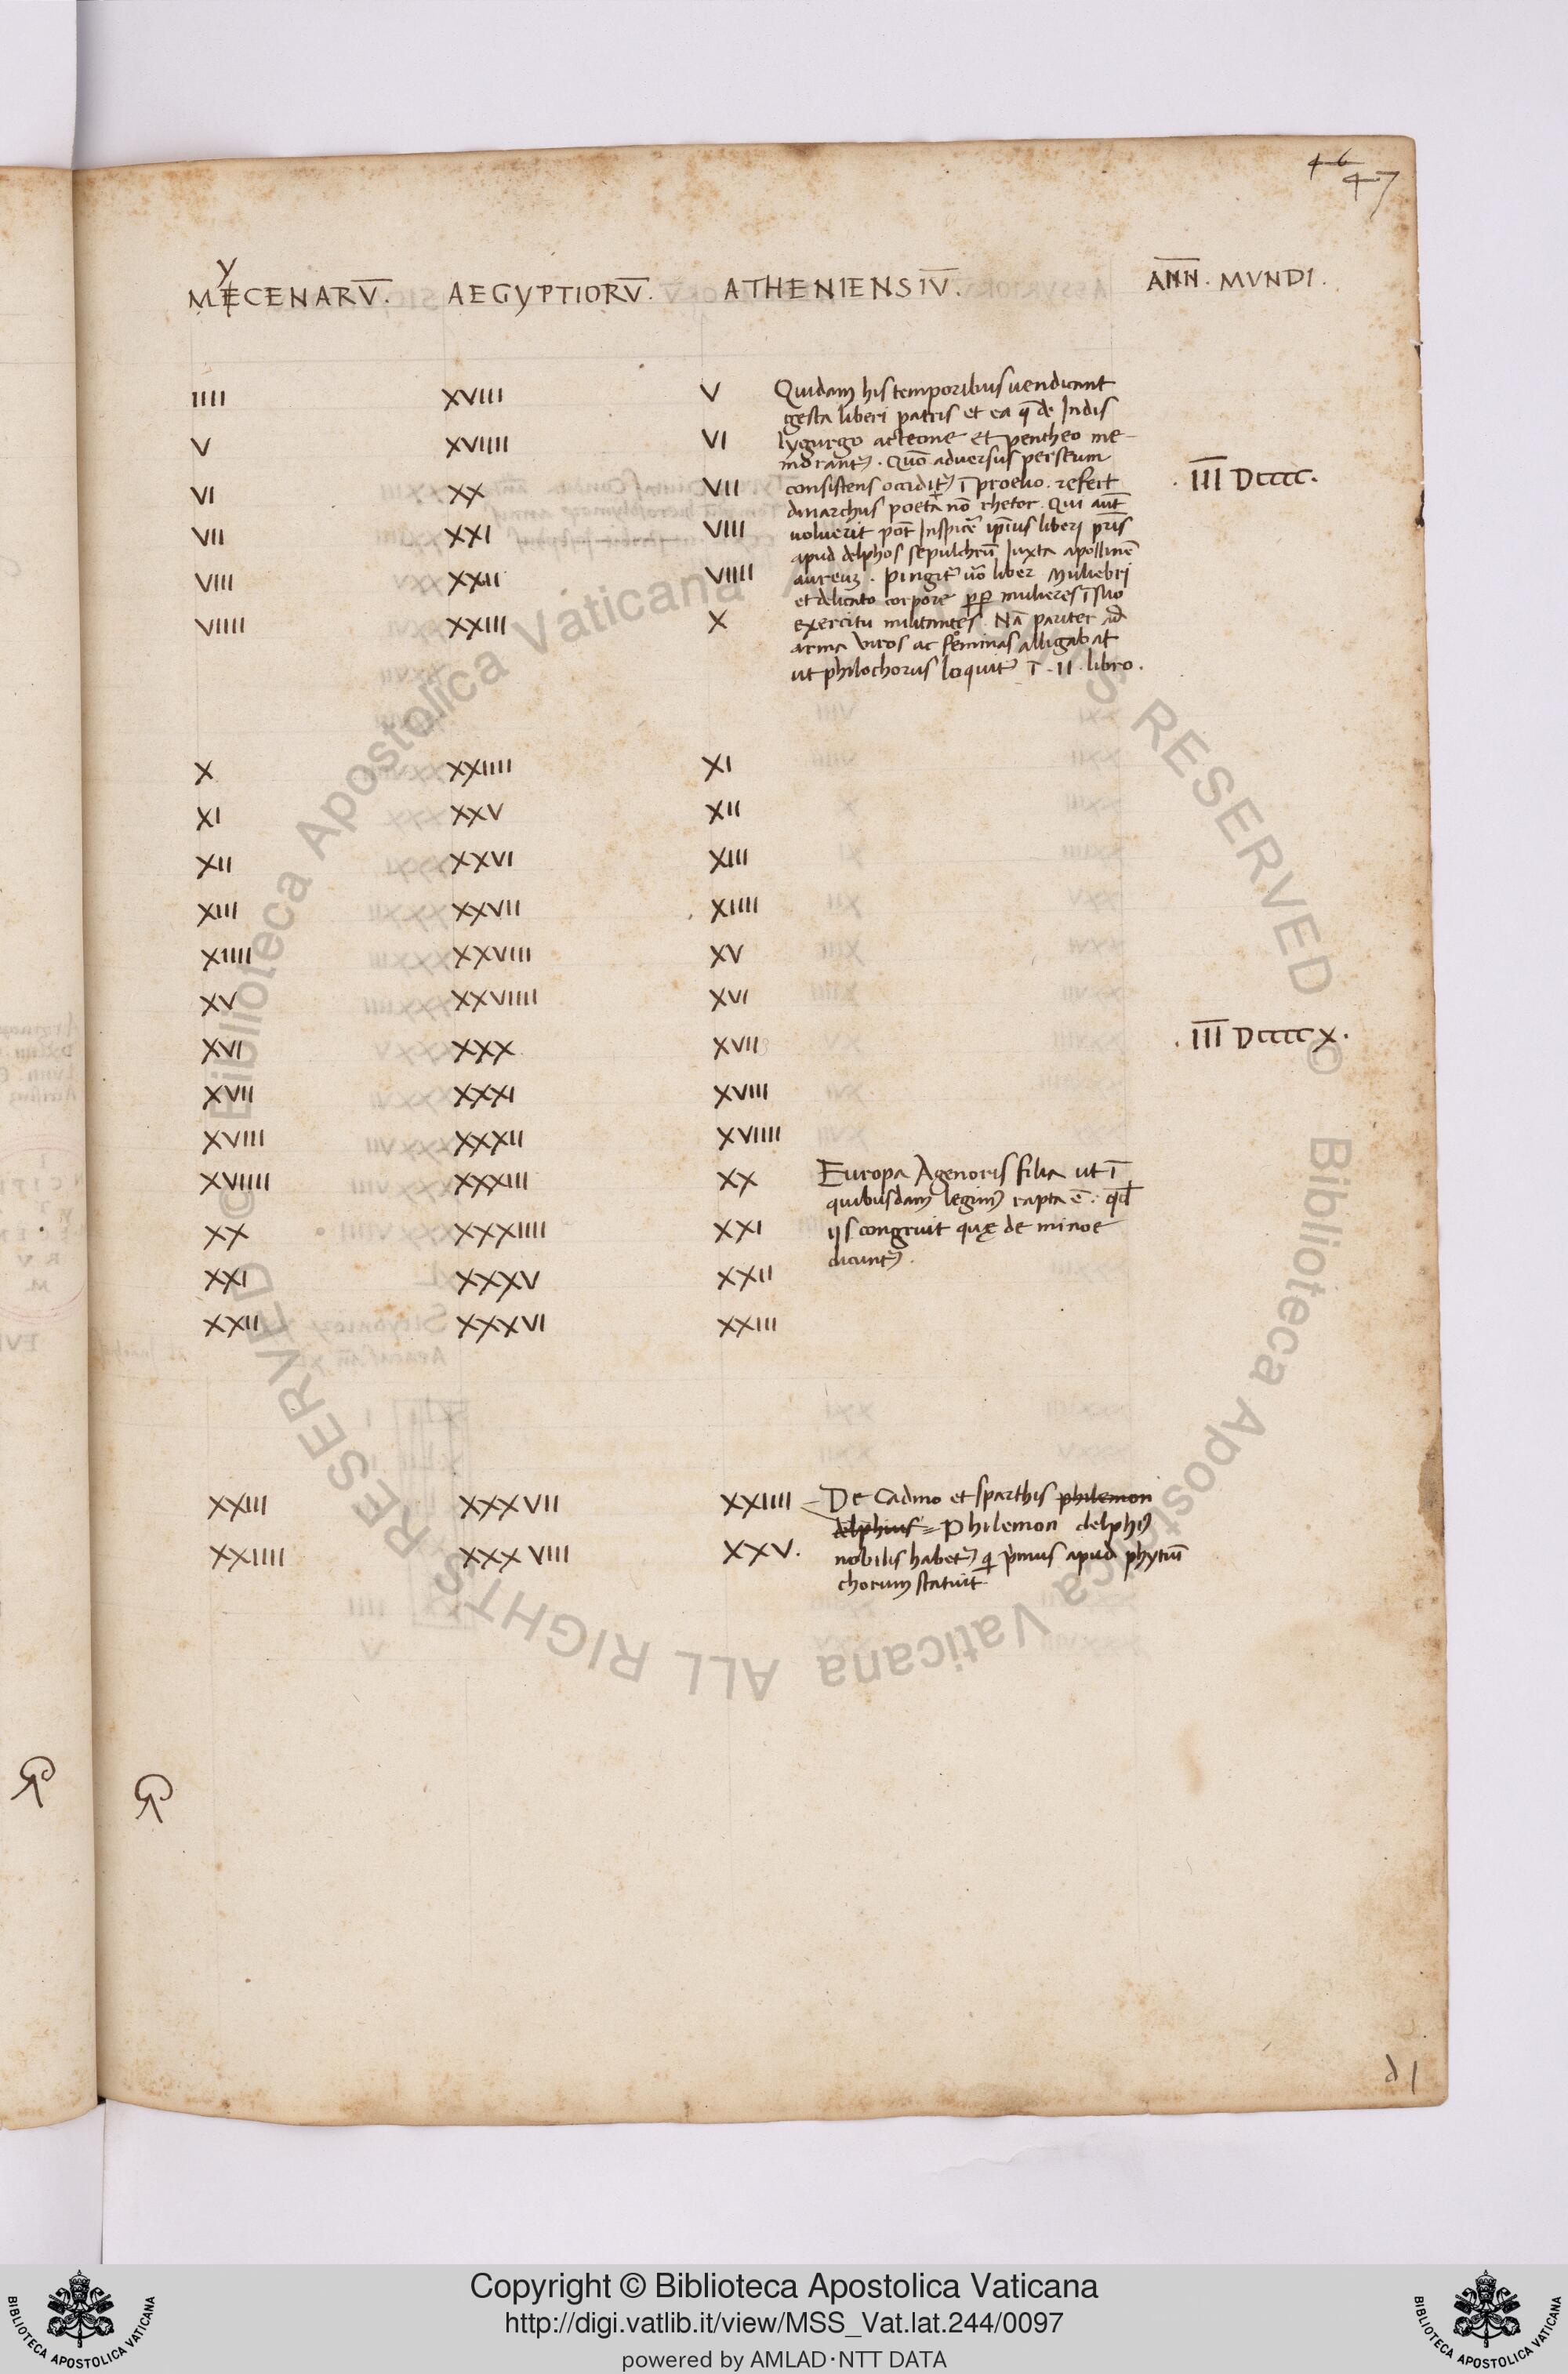 46
47
MECENARV̅. AEGYPTIORV̅. ATHENIENSIV̅. AN̅N̅. MVNDI.
y
IIII XVIII V Quidam his temporibus uendicant
gesta liberi patris et ea q̅ de Indis
V XVIIII VI lygurgo acteone et pentheo me-
morant᾽. Quō adversus perseum
VI XX VII consistens occidit᾽ ī proelio. refert . I̅I̅I̅ Dcccc.
dinarchus poeta nō rhetor. Qui aut̅
VII XXI VIII uoluerit pot̅ Inspicē ip̅ius liberi pr̅is
apud delphos sepulchrū Iuxta apollinē
VIII XXII VIIII aureuʒ. pingit᾽ uō liber Muliebri
et delicato corpore ꝓꝑ mulieres ī suo
VIIII XXIII X exercitu militantes. Nā pariter ad
arma viros ac feminas alligabat
ut philochorus loquit᾽ ī .II. libro.
X XXIIII XI
XI XXV XII
XII XXVI XIII
XIII XXVII XIIII
XIIII XXVIII XV
XV XXVIIII XVI
XVI XXX XVII . I̅I̅I̅ DccccX.
XVII XXXI XVIII
XVIII XXXII XVIIII
XVIIII XXXIII XX Europa Agenoris filia ut ī
quibusdam legim᾽ rapta ē. qđ
XX XXXIIII XXI ijs congruit quę de minoe
dicunt᾽.
XXI XXXV XXII
XXII XXXVI XXIII
XXIII XXXVII XXIIII De Cadmo et sparthis philemon
delphius = Philemon delphi᾽
XXIIII XXXVIII XXV. nobilis habet᾽ q̇ ṗmus apud phytiū
chorum statuit
d 1
© Biblioteca Apostolica Vaticana ALL RIGHTS RESERVED © Biblioteca Apostolica Vaticana ALL RIGHTS RESERVED
Copyright © Biblioteca Apostolica Vaticana
http://digi.vatlib.it/view/MSS_Vat.lat.244/0097
powered by AMLAD·NTT DATA
BIBLIOTECA APOSTOLICA VATICANA
BIBLIOTECA APOSTOLICA VATICANA